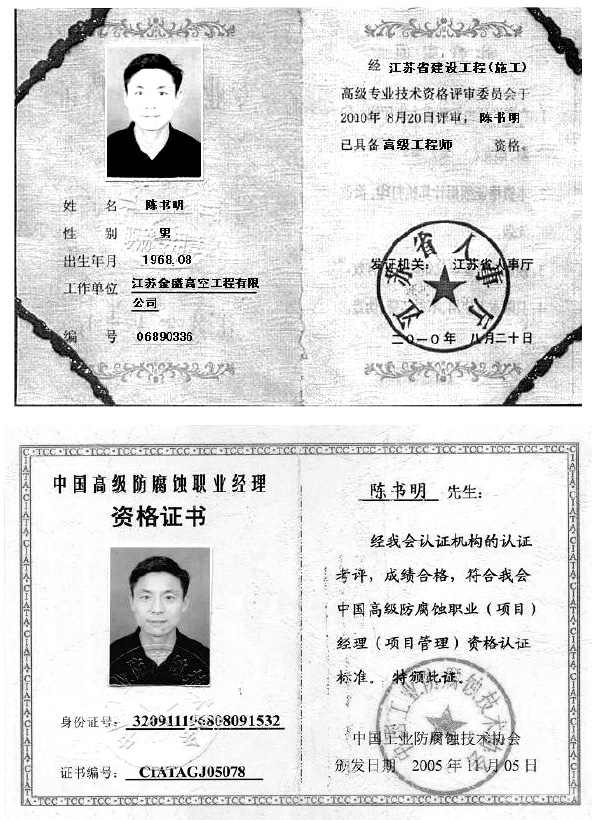 姓 名 陈书明
性 别 男
出生年月 1968.08
工作单位 江苏金盛高空工程有限
公司
编 号 06890336
经 江苏省建设工程(施工)
高级专业技术资格评审委员会于
2010年 8月20日评审, 陈书明
已具备 高级工程师 资格。
发证机关: 江苏省人事厅
江苏省人事厅
二○一○年 八月二十日
中国高级防腐蚀职业经理
资格证书
身份证号: 320911196808091532
证书编号: CIATAGJ05078
陈书明 先生:
经我会认证机构的认证
考评,成绩合格,符合我会
中国高级防腐蚀职业(项目)
经理(项目管理)资格认证
标准。特颁此证。
中国工业防腐蚀技术协会
颁发日期 2005 年 11 月 05 日